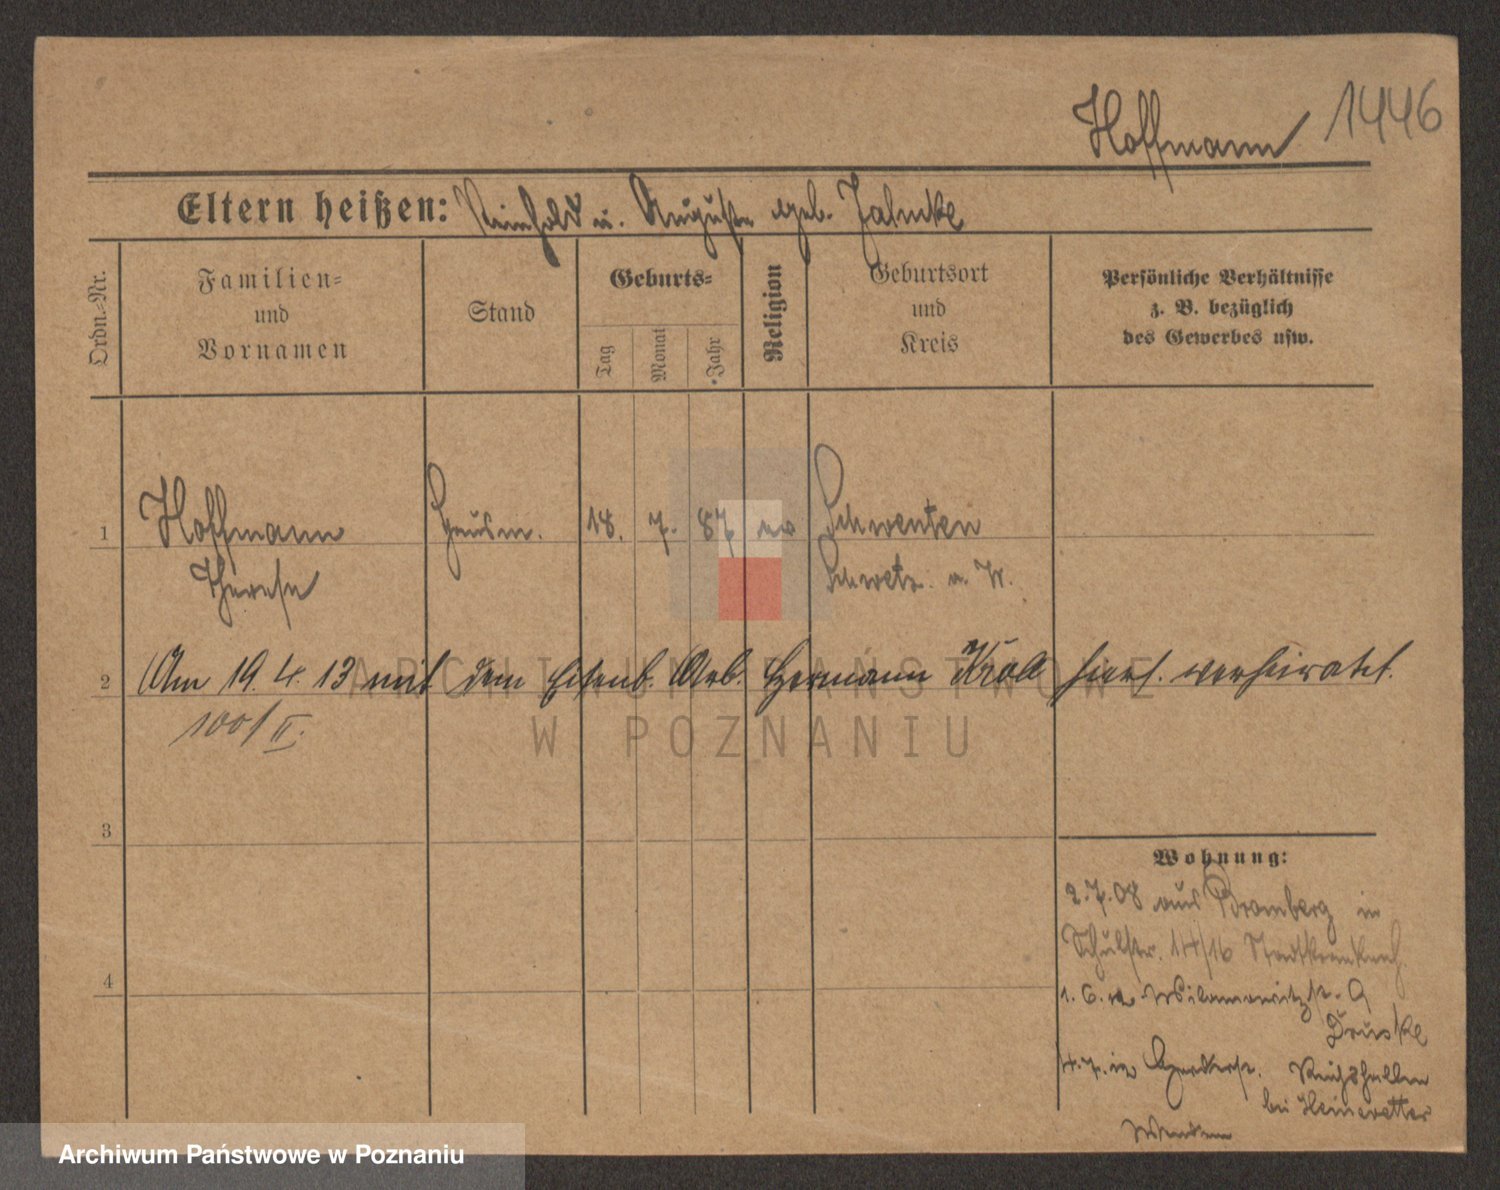 Hoffmann 1446
Eltern heißen: Reinhold u. Auguste geb. Jahnke
Ordn.-Nr.
Familien-
und
Vornamen
Stand
Geburts-
Tag
Monat
Jahr
Religion
Geburtsort
und
Kreis
Persönliche Verhältnisse
z. B. bezüglich
des Gewerbes usw.
1 Hoffmann Hausm. 18. 7. 87 ev Schwenten
Therese Schwetz a. W.
2 Am 19. 4. 13 mit dem Eisenb. Arb. Hermann Kroll hiers. verheiratet.
1001 II.
3
4
Wohnung:
2.7.08 aus Bromberg in
Schulstr. 14/16 Stadtkrankenh
1. 6. Wilamowitzstr. 9
Druske
4.7. Herderstr. Reichshallen
bei Heineretter
Wenden
ARCHIWUM PAŃSTWOWE
W POZNANIU
Archiwum Państwowe w Poznaniu